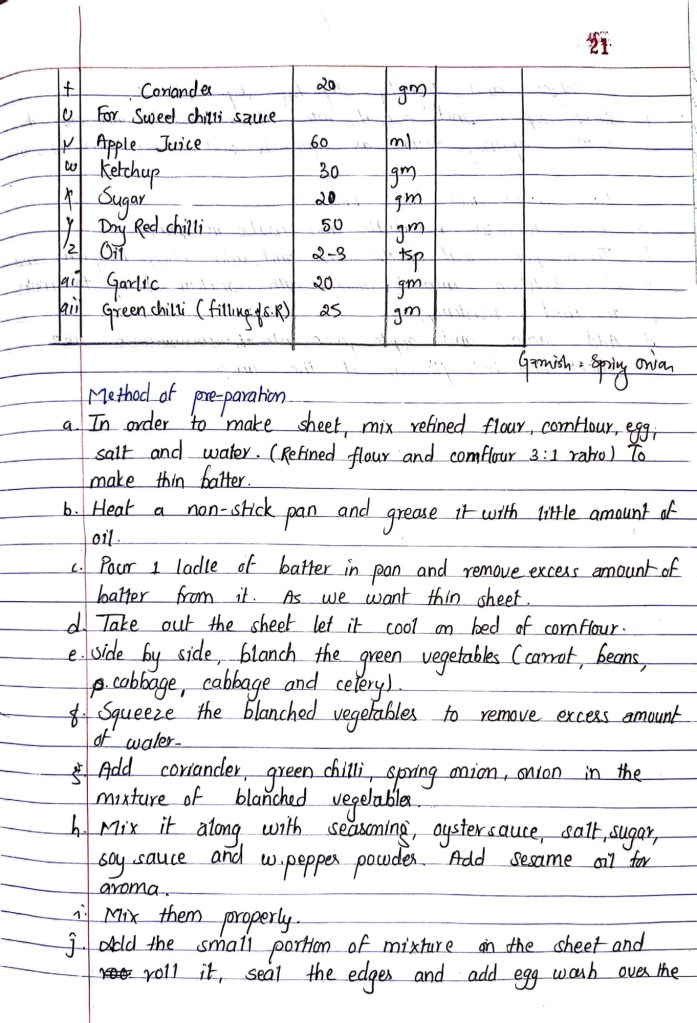 21
t Coriander 20 gm
u For Sweet chilli sauce
v Apple Juice 60 ml
w Ketchup 30 gm
x Sugar 20 gm
y Dry Red chilli 50 gm
z Oil 2-3 tsp
ai Garlic 20 gm
aii Green chilli (filling of S.R) 25 gm
Garnish = Spring onion
Method of pre-paration
a. In order to make sheet, mix refined flour, cornflour, egg,
salt and water. (Refined flour and cornflour 3:1 ratio) To
make thin batter.
b. Heat a non-stick pan and grease it with little amount of
oil.
c. Pour 1 ladle of batter in pan and remove excess amount of
batter from it. As we want thin sheet.
d. Take out the sheet let it cool on bed of cornflour.
e. Side by side, blanch the green vegetables (carrot, beans,
p. cabbage, cabbage and celery).
f. Squeeze the blanched vegetables to remove excess amount
of water.
g. Add coriander, green chilli, spring onion, onion in the
mixture of blanched vegetables.
h. Mix it along with seasoning, oyster sauce, salt, sugar,
soy sauce and w. pepper powder. Add sesame oil for
aroma.
i. Mix them properly.
j. Add the small portion of mixture in the sheet and
roll it, seal the edges and add egg wash over the